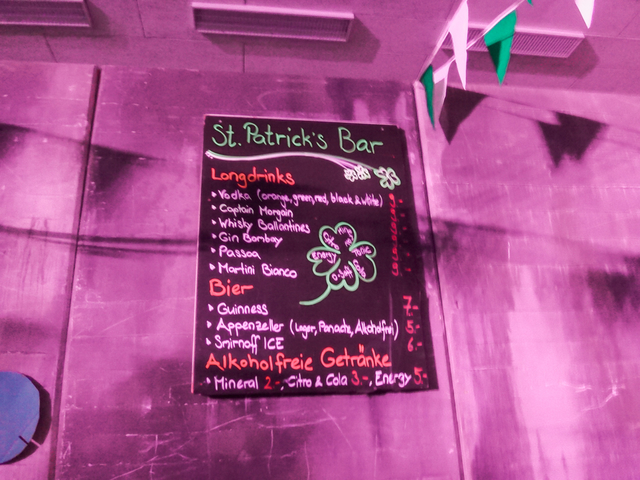 St. Patrick's Bar
Longdrinks
Vodka (orange, green, red, black & white)
Captain Morgain
Whisky Ballantines
Gin Bombay
Passoa
Martini Bianco
energy
O-Saft
Bier
Guinness 7.-
Appenzeller (Lager, Panaché, Alkoholfrei) 5.-
Smirnoff ICE 6.-
Alkoholfreie Getränke
Mineral 2.-, Citro & Cola 3.-, Energy 5.-